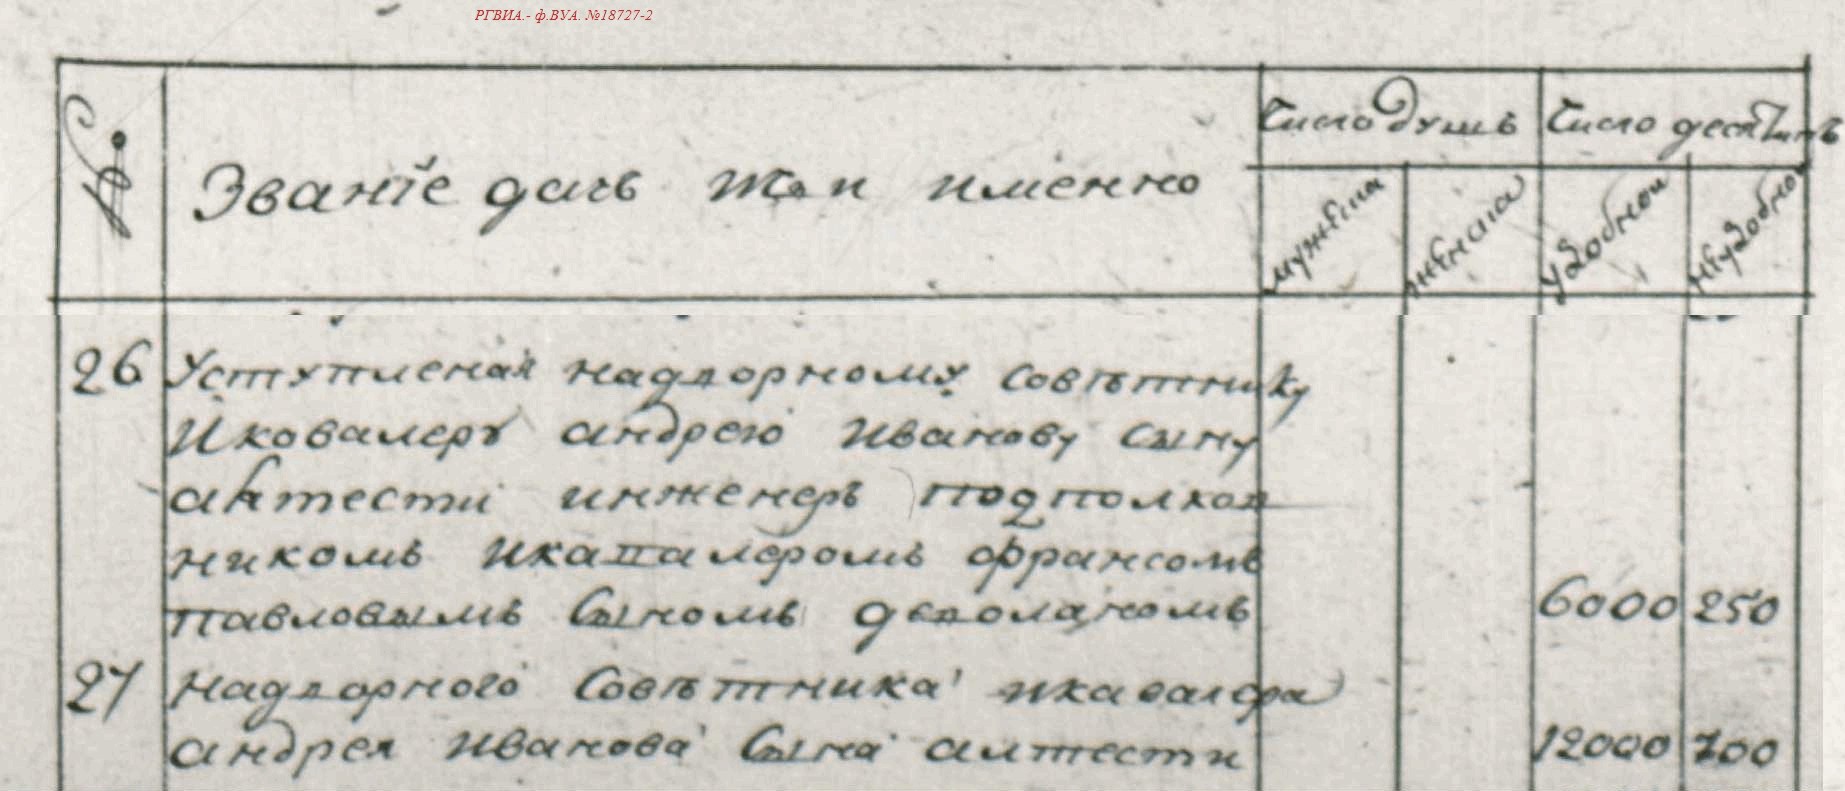 РГВИА.- ф.ВУА. №18727-2
№.
Званїе дачь
имѣнно
Число душъ
Число десятинъ
мужеска
женска
удобной
неудобной
26 Уступленая надворному совѣтнику
И ковалеру андрею Иванову сыну
алтести инженеръ подполков
никомъ и кавалеромъ францомъ
павловымъ сыномъ деволаномъ 6000 250
27 Надворного Совѣтника и кавалера
андрея Иванова Сына алтести 12000 700